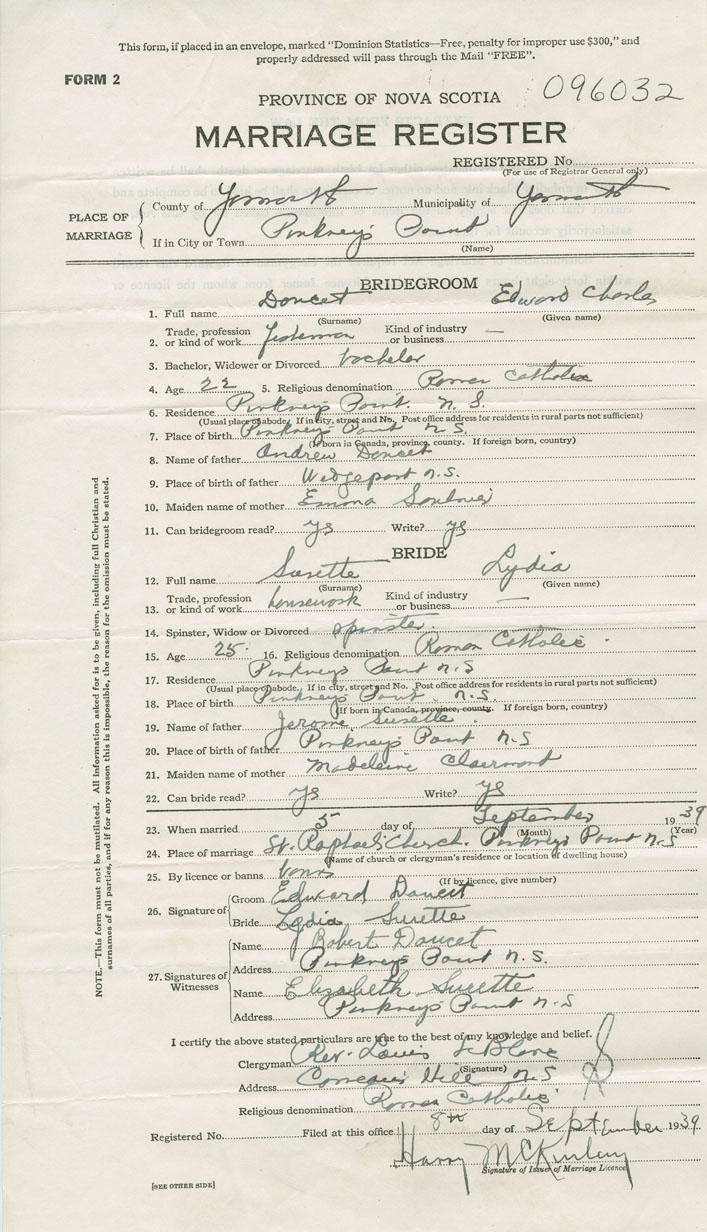 This form, if placed in an envelope, marked "Dominion Statistics—Free, penalty for improper use $300," and
properly addressed will pass through the Mail "FREE".
FORM 2
PROVINCE OF NOVA SCOTIA 096032
MARRIAGE REGISTER
REGISTERED No.
(For use of Registrar General only)
PLACE OF MARRIAGE
County of Yarmouth Municipality of Yarmouth
If in City or Town Pinkney's Point
(Name)
BRIDEGROOM
1. Full name Doucet Edward Charles
(Surname) (Given name)
2. Trade, profession or kind of work fisherman Kind of industry or business —
3. Bachelor, Widower or Divorced bachelor
4. Age 22 5. Religious denomination Roman Catholic
6. Residence Pinkney's Point. N.S.
(Usual place of abode. If in city, street and No. Post office address for residents in rural parts not sufficient)
7. Place of birth Pinkney's Point N.S.
(If born in Canada, province, county. If foreign born, country)
8. Name of father Andrew Doucet
9. Place of birth of father Wedgeport N.S.
10. Maiden name of mother Emma Soulnier
11. Can bridegroom read? yes Write? yes
BRIDE
12. Full name Surette Lydia
(Surname) (Given name)
13. Trade, profession or kind of work housework Kind of industry or business —
14. Spinster, Widow or Divorced spinster
15. Age 25 16. Religious denomination Roman Catholic
17. Residence Pinkney's Point N.S
(Usual place of abode. If in city, street and No. Post office address for residents in rural parts not sufficient)
18. Place of birth Pinkney's Point N.S
(If born in Canada, province, county. If foreign born, country)
19. Name of father Jerome Surette
20. Place of birth of father Pinkney's Point N.S
21. Maiden name of mother Madeleine Clairmont
22. Can bride read? yes Write? yes
23. When married 5 day of September 1939
(Month) (Year)
24. Place of marriage St. Raphael's Church. Pinkney's Point N.S
(Name of church or clergyman's residence or location of dwelling house)
25. By licence or banns banns
(If by licence, give number)
26. Signature of
Groom Edward Doucet
Bride Lydia Surette
27. Signatures of Witnesses
Name Robert Doucet
Address Pinkney's Point N.S.
Name Elizabeth Surette
Address Pinkney's Point N.S
I certify the above stated particulars are true to the best of my knowledge and belief.
Clergyman Rev. Louis LeBlanc
(Signature)
Address Comeau's Hill N.S
Religious denomination Roman Catholic
Registered No. Filed at this office 8th day of September 1939
Harry McKinley
Signature of Issuer of Marriage Licence
[SEE OTHER SIDE]
NOTE.—This form must not be mutilated. All information asked for is to be given, including full Christian and
surnames of all parties, and if for any reason this is impossible, the reason for the omission must be stated.